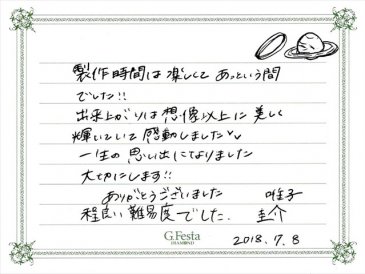 製作時間は楽しくて あっという間
でした!!
出来上がりは想像以上に美しく
輝いていて感動しました♡♡
一生の思い出になりました
大切にします!!
ありがとうございました 唯子
程良い難易度でした. 圭介
G.Festa
DIAMOND
2018.7.8